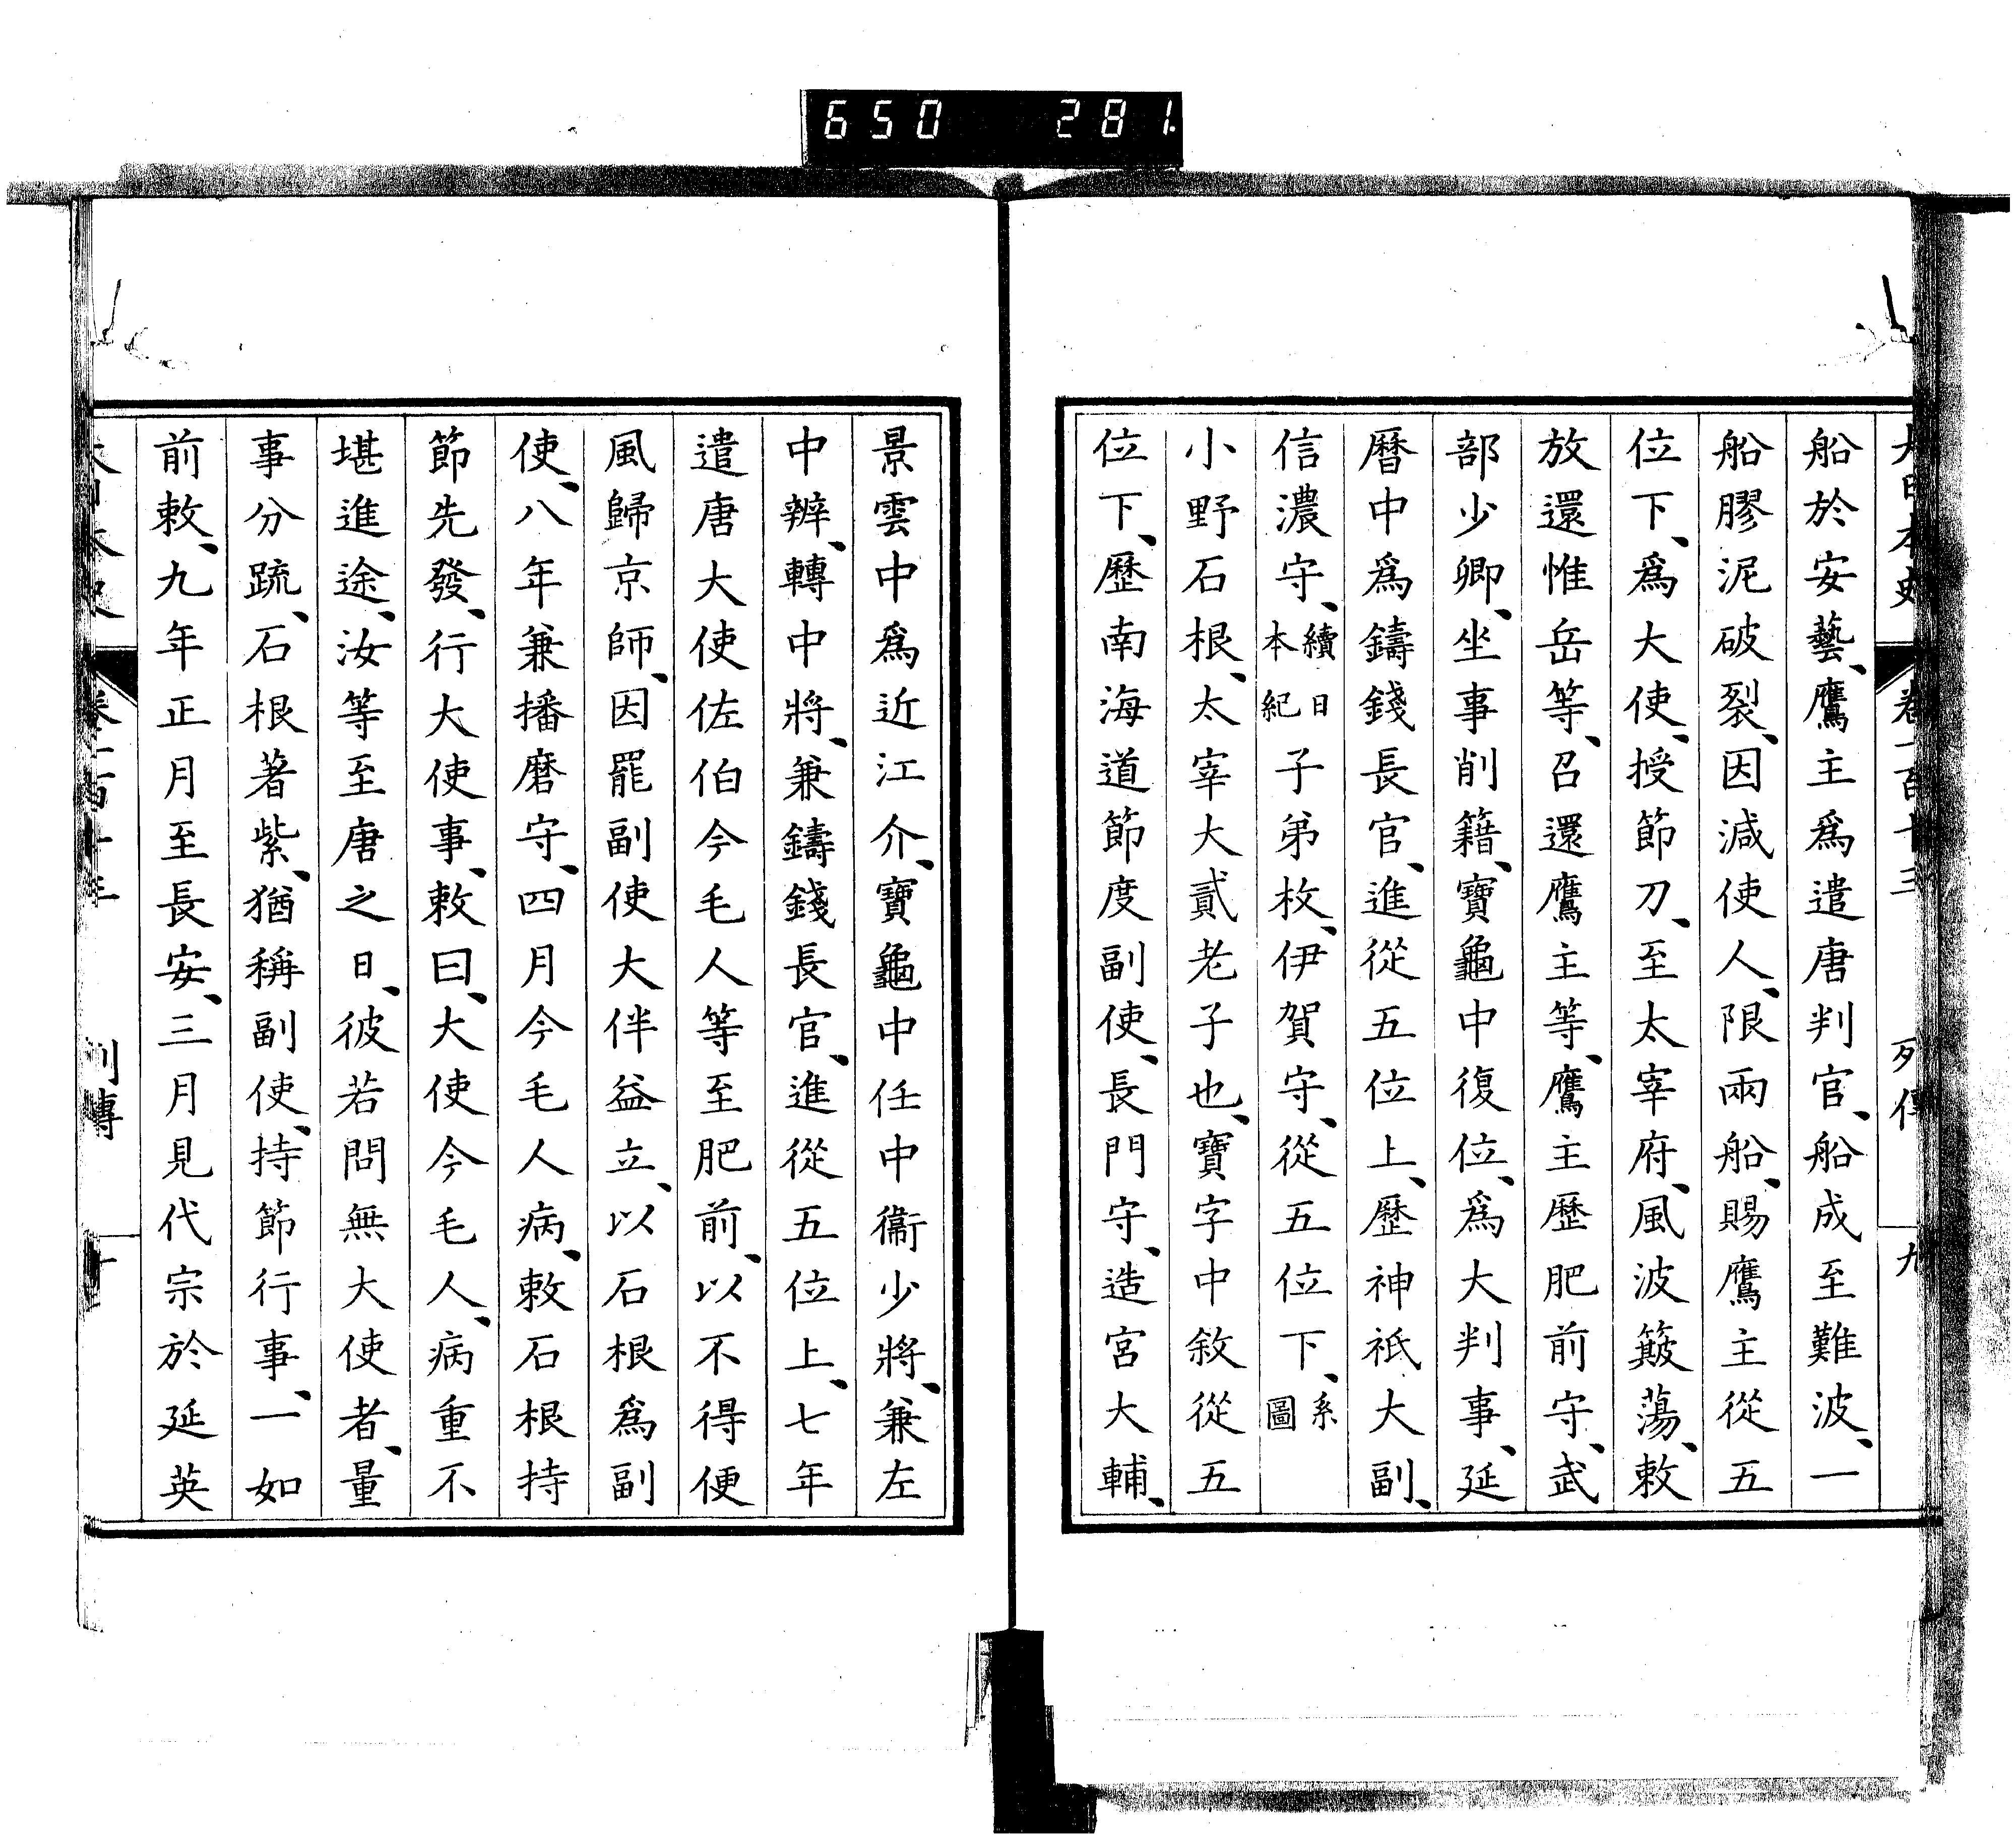 650 281
大日本史 卷一百十三 列傳 九
船於安藝、鷹主爲遣唐判官、船成至難波、一
船膠泥破裂、因減使人、限兩船、賜鷹主從五
位下、爲大使、授節刀、至太宰府、風波簸蕩、敕
放還惟岳等、召還鷹主等、鷹主歷肥前守、武
部少卿、坐事削籍、寶龜中復位、爲大判事、延
曆中爲鑄錢長官、進從五位上、歷神祇大副、
信濃守、續日本紀子弟枚、伊賀守、從五位下、系圖
小野石根、太宰大貳老子也、寶字中敘從五
位下、歷南海道節度副使、長門守、造宮大輔、
景雲中爲近江介、寶龜中任中衞少將、兼左
中辨、轉中將、兼鑄錢長官、進從五位上、七年
遣唐大使佐伯今毛人等至肥前、以不得便
風歸京師、因罷副使大伴益立、以石根爲副
使、八年兼播磨守、四月今毛人病、敕石根持
節先發、行大使事、敕曰、大使今毛人、病重不
堪進途、汝等至唐之日、彼若問無大使者、量
事分疏、石根著紫、猶稱副使、持節行事、一如
前敕、九年正月至長安、三月見代宗於延英
大日本史 卷一百十三 列傳 十